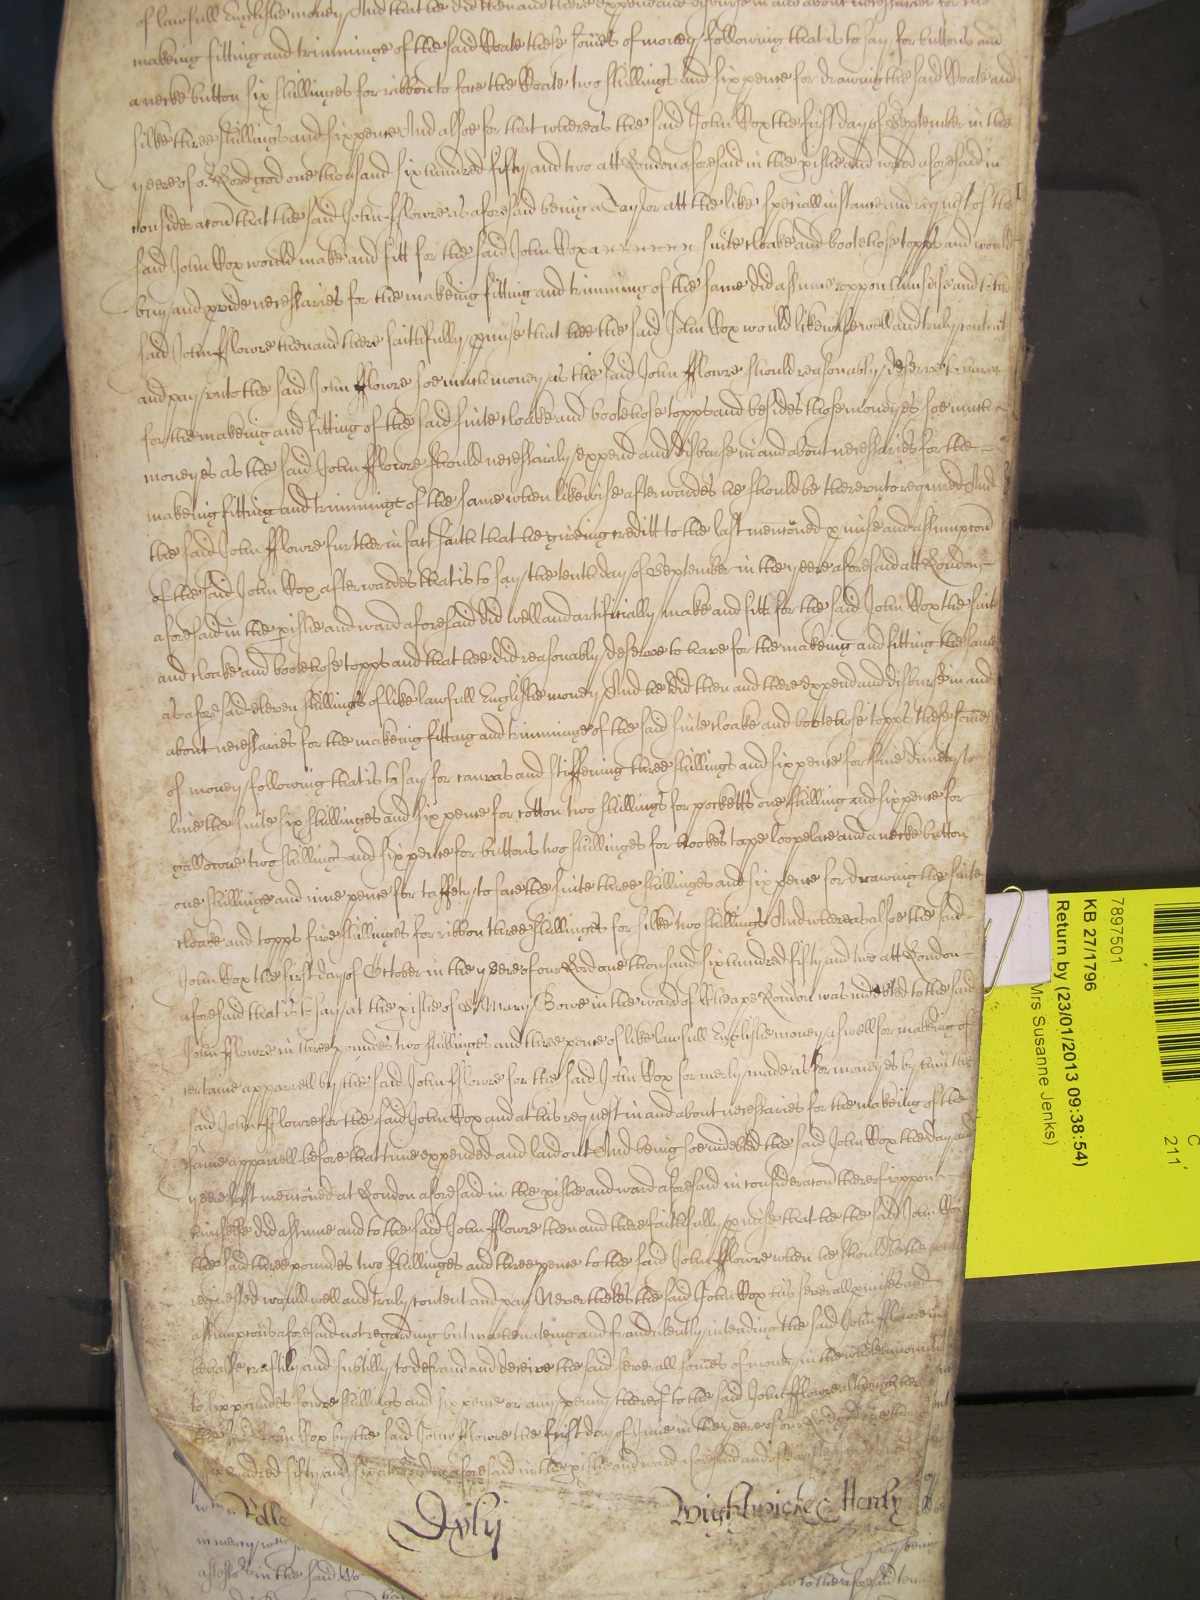 of lawfull Englishe money And that he did then and there expend and disburse in and about necessaries for the
makeing fitting and trimminge of the said Coate these som̄es of money following that is to say for buttons and
a necke button six shillinges for ribbon to face the Coate two shillings and six pence for drawing the said Coate and
silke three shillings and six pence And alsoe for that whereas the said John Cox the first day of September in the
yeere of or Lord god one thousand six hundred fifty and two att London aforesaid in the pishe and ward aforesaid in
consideracōn that the said John fflowre as aforesaid being a Taylor att the like speciall instance and request of the
said John Cox would make and fitt for the said John Cox a suite cloake and boote hose topps and would
buy and pvide necessaries for the makeing fitting and trimming of the same did assume vppon himselfe and to the
said John fflowre then and there faithfully pmise that hee the said John Cox would likewise well and truly content
and pay vnto the said John fflowre soe much money as the said John fflowre should reasonably deserve to have
for the makeing and fitting of the said suite cloake and boote hose topps and besides those moneyes soe much
moneyes as the said John fflowre should necessarily expend and disburse in and about necessaries for the
makeing fitting and trimminge of the same when likewise afterwardes he should be therevnto required And
the said John fflowre further in fact saith that he giveing creditt to the last mentioned pmise and assumpcōn
of the said John Cox afterwardes that is to say the tenth day of September in the yeere aforesaid att London
aforesaid in the pishe and ward aforesaid did well and artificially make and fitt for the said John Cox the suite
and cloake and boote hose topps and that hee did reasonably deserve to have for the makeing and fitting the same
as aforesaid eleven shillings of like lawfull Englishe money And he did then and there expend and disburse in and
about necessaries for the makeing fitting and trimminge of the said suite cloake and boote hose topps these som̄es
of money following that is to say for canvas and stiffening three shillings and six pence for fine dimety to
line the suite six shillinges and six pence for cotton two shillings for pocketts one shilling and six pence for
gallowne two shillings and six pence for buttons two shillinges for hookes tape loopelace and a necke button
one shillinge and nine pence for taffety to face the suite three shillinges and six pence for drawing the suite
cloake and topps five shillinges for ribbon three shillinges for silke two shillings And whereas alsoe the said
John Cox the first day of October in the yeere of our Lord one thousand six hundred fifty and two att London
aforesaid that is to say at the pishe of St Mary Bowe in the ward of Cheape London was indebted to the said
John fflowre in three poundes two shillinges and three pence of like lawfull Englishe money aswell for makeing of
certaine apparrell by the said John fflowre for the said John Cox formerly made as for moneyes by him the
said John fflowre for the said John Cox and at his request in and about necessaries for the makeing of the
same apparrell before that time expended and laid out And being soe indebted the said John Cox the day and
yeere last mencōned at London aforesaid in the pishe and ward aforesaid in consideracōn thereof vppon
himselfe did assume and to the said John fflowre then and there faithfully pmise that he the said John Cox
the said three poundes two shillinges and three pence to the said John fflowre when he should be there
requested would well and truly content and pay Neverthelesse the said John Cox his severall pmises and
assumpcōns aforesaid not regarding but machinateing and fraudulently intending the said John fflowre in
behalfe craftily and subtilly to defraud and deceive the said severall som̄es of money in the whole
to six poundes fowre shillings and six pence or any penny thereof to the said John fflowre although hee
the said John Cox by the said John fflowre the first day of June in the yeere of our Lord one thousand
six hundred fifty and six att London aforesaid in the pishe and ward aforesaid and often
Rolle
Dyly
Wightwicke Henly
7897501
KB 27/1796
Return by (23/01/2013 09:38:54)
Mrs Susanne Jenks)
C
211